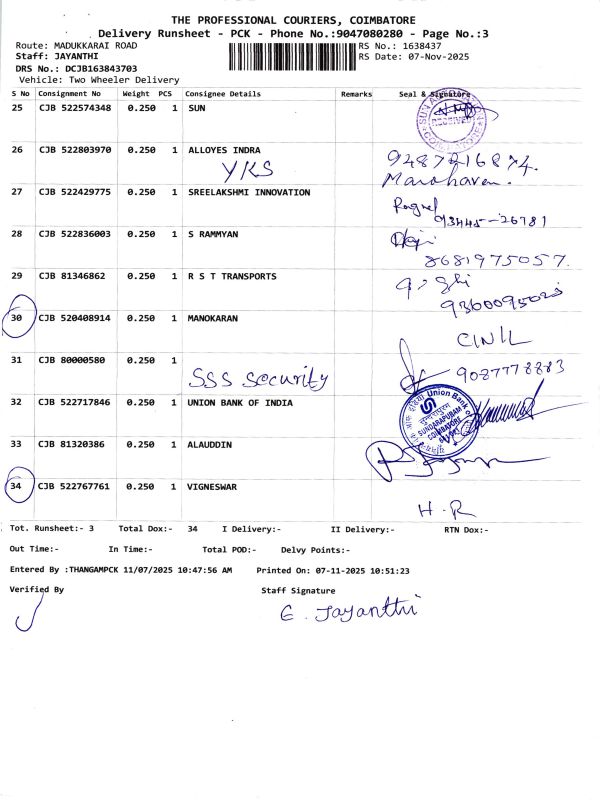 THE PROFESSIONAL COURIERS, COIMBATORE
Delivery Runsheet - PCK - Phone No.:9047080280 - Page No.:3
Route: MADUKKARAI ROAD RS No.: 1638437
Staff: JAYANTHI RS Date: 07-Nov-2025
DRS No.: DCJB163843703
Vehicle: Two Wheeler Delivery
S No Consignment No Weight PCS Consignee Details Remarks Seal & Signature
25 CJB 522574348 0.250 1 SUN
RECEIVED
26 CJB 522803970 0.250 1 ALLOYES INDRA
YKS
27 CJB 522429775 0.250 1 SREELAKSHMI INNOVATION
93445-26781
28 CJB 522836003 0.250 1 S RAMMYAN
8681975057.
29 CJB 81346862 0.250 1 R S T TRANSPORTS
30 CJB 520408914 0.250 1 MANOKARAN
CINIL
31 CJB 80000580 0.250 1
SSS security 9087778883
32 CJB 522717846 0.250 1 UNION BANK OF INDIA
Union Bank of
SUNDARAPURAM
COIMBATORE
33 CJB 81320386 0.250 1 ALAUDDIN
34 CJB 522767761 0.250 1 VIGNESWAR
H.R
Tot. Runsheet:- 3 Total Dox:- 34 I Delivery:- II Delivery:- RTN Dox:-
Out Time:- In Time:- Total POD:- Delvy Points:-
Entered By :THANGAMPCK 11/07/2025 10:47:56 AM Printed On: 07-11-2025 10:51:23
Verified By Staff Signature
E. Jayanthi